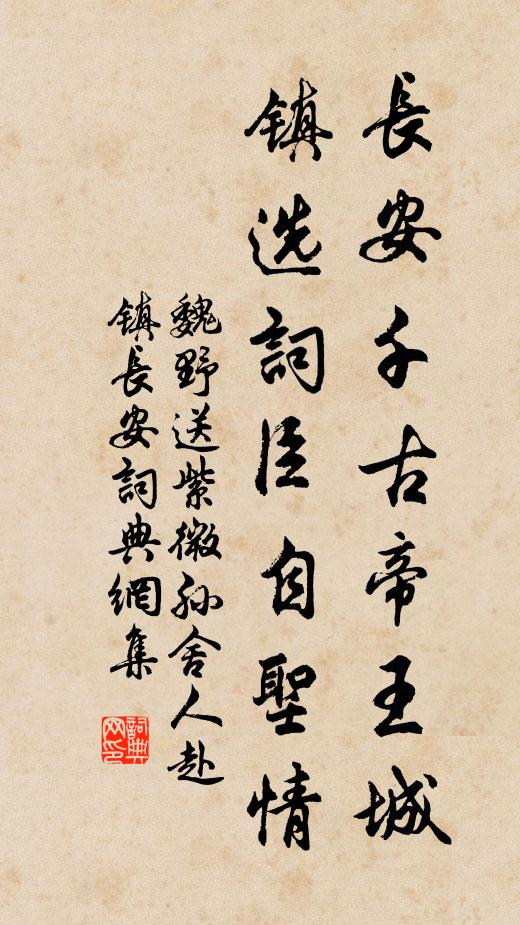 長安千古帝王城
镇选詞臣自聖情
魏野送紫微孙舍人赴
镇長安詞典網集
詞典网印